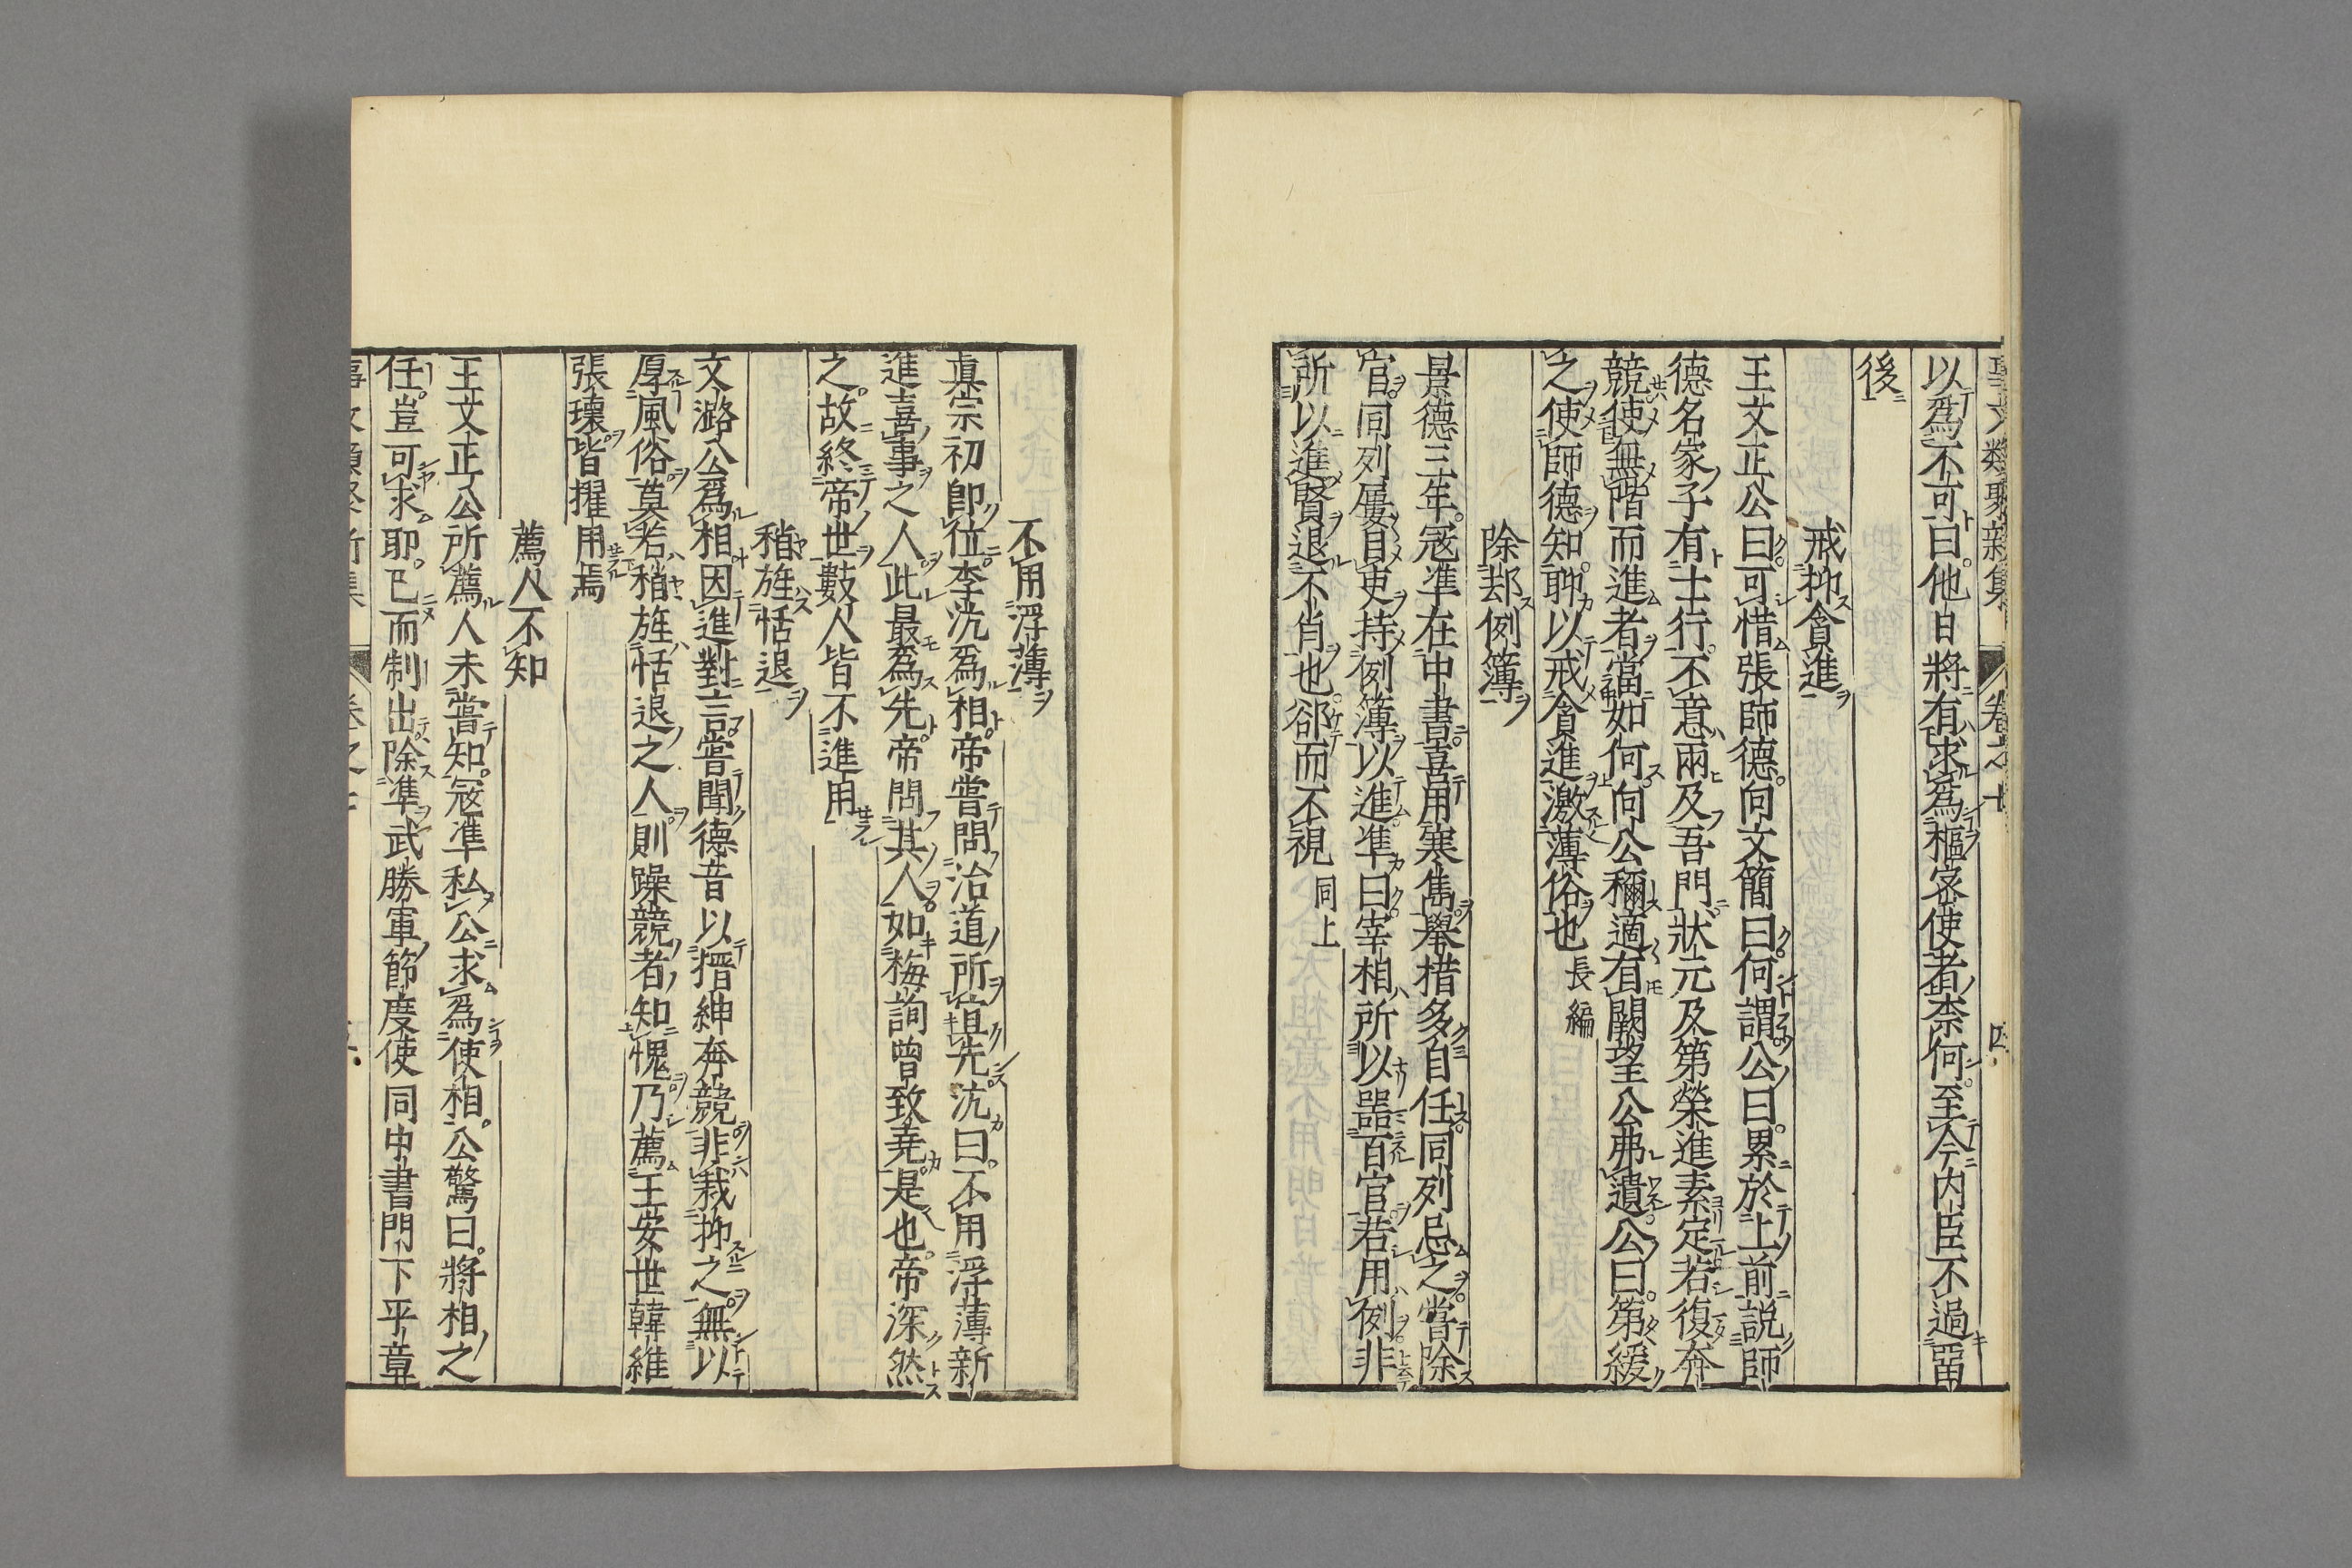 以爲不可曰他日將有求爲樞密使者柰何至今内臣不過畱
後
戒抑貪進
王文正公曰可惜張師德向文簡曰何謂公曰累於上前説師
德名家子有士行不意兩及吾門狀元及第榮進素定若復奔
競使無階而進者當如何向公稱適有闕望公弗遺公曰第緩
之使師德知聊以戒貪進激薄俗也 長編
除却例簿
景德三年寇準在中書喜用寒雋舉措多自任同列忌之嘗除
官同列屢目吏持例簿以進準曰宰相所以器百官若用例非
所以進賢退不肖也卻而不視 同上
不用浮薄
眞宗初卽位李沆爲相帝嘗問治道所宜先沆曰不用浮薄新
進喜事之人此最爲先帝問其人如梅詢曾致堯是也帝深然
之故終帝世數人皆不進用
稍旌恬退
文潞公爲相因進對言嘗聞德音以搢紳奔競非裁抑之無以
厚風俗莫若稍旌恬退之人則躁競者知愧乃薦王安世韓維
張瓌皆擢用焉
薦人不知
王文正公所薦人未嘗知寇準私公求爲使相公驚曰將相之
任豈可求耶已而制出除準武勝軍節度使同中書門下平章